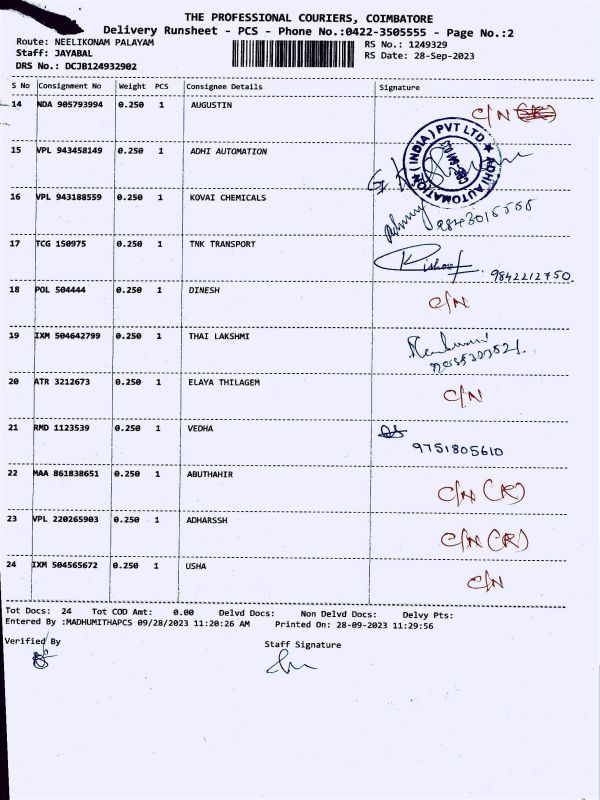 THE PROFESSIONAL COURIERS, COIMBATORE
Delivery Runsheet - PCS - Phone No.:0422-3505555 - Page No.:2
Route: NEELIKONAM PALAYAM
RS No.: 1249329
Staff: JAYABAL
RS Date: 28-Sep-2023
DRS No.: DCJB124932902
S No Consignment No Weight PCS Consignee Details Signature
14 NDA 905793994 0.250 1 AUGUSTIN C/N
15 VPL 943458149 0.250 1 ADHI AUTOMATION
ADHI AUTOMATION (INDIA) PVT LTD.
16 VPL 943188559 0.250 1 KOVAI CHEMICALS
17 TCG 150975 0.250 1 TNK TRANSPORT Kishore 9842212750
18 POL 504444 0.250 1 DINESH C/N
19 IXM 504642799 0.250 1 THAI LAKSHMI
20 ATR 3212673 0.250 1 ELAYA THILAGEM C/N
21 RMD 1123539 0.250 1 VEDHA 9751805610
22 MAA 861838651 0.250 1 ABUTHAHIR C/N (R)
23 VPL 220265903 0.250 1 ADHARSSH C/N (R)
24 IXM 504565672 0.250 1 USHA C/N
Tot Docs: 24 Tot COD Amt: 0.00 Delvd Docs: Non Delvd Docs: Delvy Pts:
Entered By :MADHUMITHAPCS 09/28/2023 11:20:26 AM Printed On: 28-09-2023 11:29:56
Verified By
Staff Signature